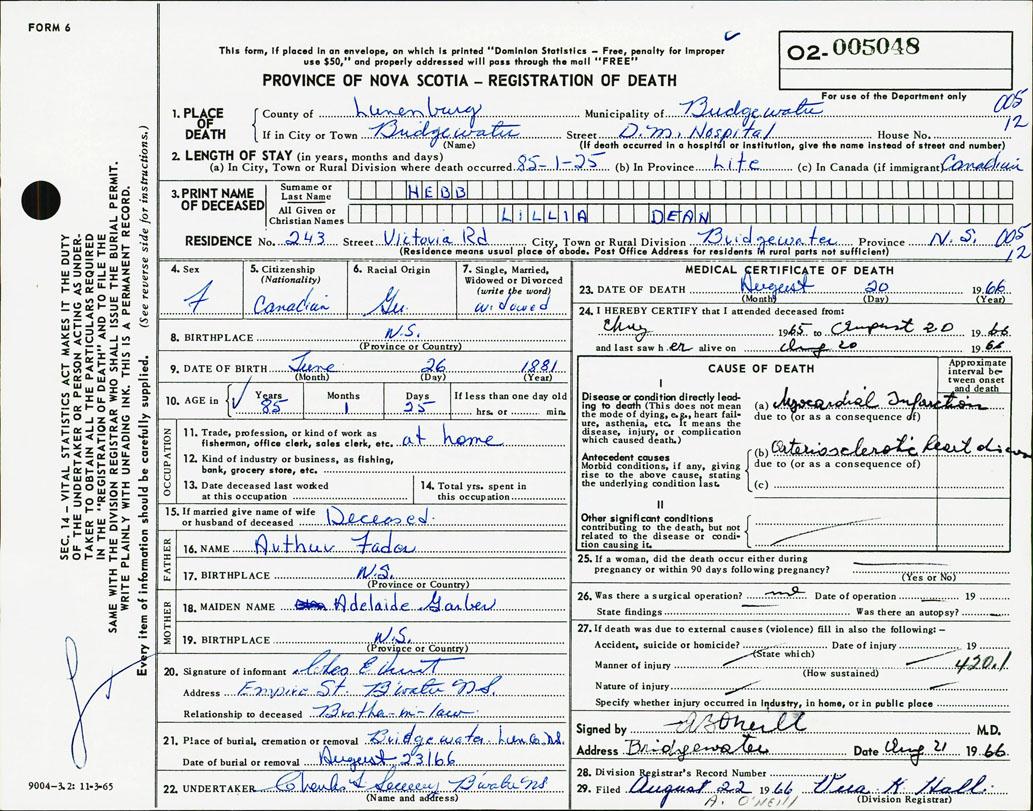 FORM 6
This form, if placed in an envelope, on which is printed "Dominion Statistics – Free, penalty for improper
use $50," and properly addressed will pass through the mail "FREE"
O2-005048
PROVINCE OF NOVA SCOTIA – REGISTRATION OF DEATH
For use of the Department only
005
12
1. PLACE OF DEATH
County of Lunenburg Municipality of Bridgewater
If in City or Town Bridgewater Street D.M. Hospital House No.
(Name) (If death occurred in a hospital or institution, give the name instead of street and number)
2. LENGTH OF STAY (in years, months and days)
(a) In City, Town or Rural Division where death occurred 85-1-25 (b) In Province Life (c) In Canada (if immigrant) Canadian
3. PRINT NAME OF DECEASED
Surname or Last Name HEBB
All Given or Christian Names LILLIA DEAN
RESIDENCE No. 243 Street Victoria Rd City, Town or Rural Division Bridgewater Province N.S. 005
12
(Residence means usual place of abode. Post Office Address for residents in rural parts not sufficient)
4. Sex F
5. Citizenship (Nationality) Canadian
6. Racial Origin Ger.
7. Single, Married, Widowed or Divorced (write the word) widowed
8. BIRTHPLACE N.S.
(Province or Country)
9. DATE OF BIRTH June 26 1881
(Month) (Day) (Year)
10. AGE in Years Months Days If less than one day old
85 1 25 hrs. or min.
OCCUPATION
11. Trade, profession, or kind of work as
fisherman, office clerk, sales clerk, etc. at home
12. Kind of industry or business, as fishing,
bank, grocery store, etc.
13. Date deceased last worked
at this occupation
14. Total yrs. spent in
this occupation
15. If married give name of wife
or husband of deceased Deceased.
FATHER
16. NAME Arthur Fader
17. BIRTHPLACE N.S.
(Province or Country)
MOTHER
18. MAIDEN NAME Adelaide Garber
19. BIRTHPLACE N.S.
(Province or Country)
20. Signature of informant
Address Empire St. B'water N.S.
Relationship to deceased Brother-in-law
21. Place of burial, cremation or removal Bridgewater Lun Co. N.S.
Date of burial or removal August 23/66
22. UNDERTAKER B'water NS
(Name and address)
MEDICAL CERTIFICATE OF DEATH
23. DATE OF DEATH August 20 1966
(Month) (Day) (Year)
24. I HEREBY CERTIFY that I attended deceased from:
1965 to August 20 1966
and last saw her alive on Aug 20 1966
CAUSE OF DEATH
Approximate interval between onset and death
I
Disease or condition directly leading to death (This does not mean the mode of dying, e.g., heart failure, asthenia, etc. It means the disease, injury, or complication which caused death.)
(a) Myocardial Infarction
due to (or as a consequence of)
Antecedent causes
Morbid conditions, if any, giving rise to the above cause, stating the underlying condition last.
(b) Arteriosclerotic heart disease
due to (or as a consequence of)
(c)
II
Other significant conditions
contributing to the death, but not related to the disease or condition causing it.
25. If a woman, did the death occur either during
pregnancy or within 90 days following pregnancy?
(Yes or No)
26. Was there a surgical operation? no Date of operation 19
State findings Was there an autopsy?
27. If death was due to external causes (violence) fill in also the following: –
Accident, suicide or homicide? Date of injury 19
(State which)
Manner of injury 420.1
(How sustained)
Nature of injury
Specify whether injury occurred in industry, in home, or in public place
Signed by A B O'Neill M.D.
Address Bridgewater Date Aug 21 1966
28. Division Registrar's Record Number
29. Filed August 22 1966 K Hall
A. O'NEILL (Division Registrar)
SEC. 14 – VITAL STATISTICS ACT MAKES IT THE DUTY
OF THE UNDERTAKER OR PERSON ACTING AS UNDER-
TAKER TO OBTAIN ALL THE PARTICULARS REQUIRED
IN THE "REGISTRATION OF DEATH" AND TO FILE THE
SAME WITH THE DIVISION REGISTRAR WHO SHALL ISSUE THE BURIAL PERMIT.
WRITE PLAINLY WITH UNFADING INK. THIS IS A PERMANENT RECORD.
Every item of information should be carefully supplied. (See reverse side for instructions.)
9004-3.2: 11-3-65